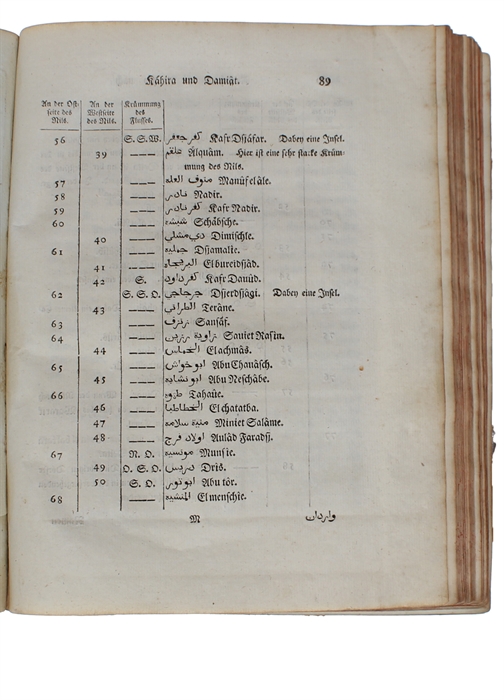 Káhira und Damiât. 89
An der Ost- An der Krümmung
seite des Westseite des
Nils. des Nils. Flusses.
56 S. S. W. كفر جعفر Kafr Dsjáfar. Dabey eine Insel.
39 —— علقم Alquám. Hier ist eine sehr starke Krüm-
mung des Nils.
57 —— منوف العله Manûf elále.
58 —— نادر Nadir.
59 —— كفر نادر Kafr Nadir.
60 —— شبشه Schâbsche.
40 —— دي مشلي Dimischle.
61 —— جمليه Dsjamalie.
41 —— Elbureidsjâd.
42 S. كفر داود Kafr Daûd.
62 S. S. O. جرجاجي Dsjerdsjâgi. Dabey eine Insel.
43 —— الطراني Teráne.
63 —— Sansâf.
64 —— زاوية رزين Sauiet Rasin.
44 —— الخماس Elachmâs.
65 —— ابو خواش Abu Chanâsch.
45 —— ابو نشابه Abu Neschâbe.
66 —— طنوه Tahaûe.
46 —— الخطاطبا El chatatba.
47 —— منية سلامه Miniet Salâme.
48 —— اولاد فرج Aulâd Faradsj.
67 N. O. مونسيه Munsie.
49 O. S. O. دريس Dris.
50 S. O. ابو تور Abu tôr.
68 —— المنشيه El menschie.
M واردان